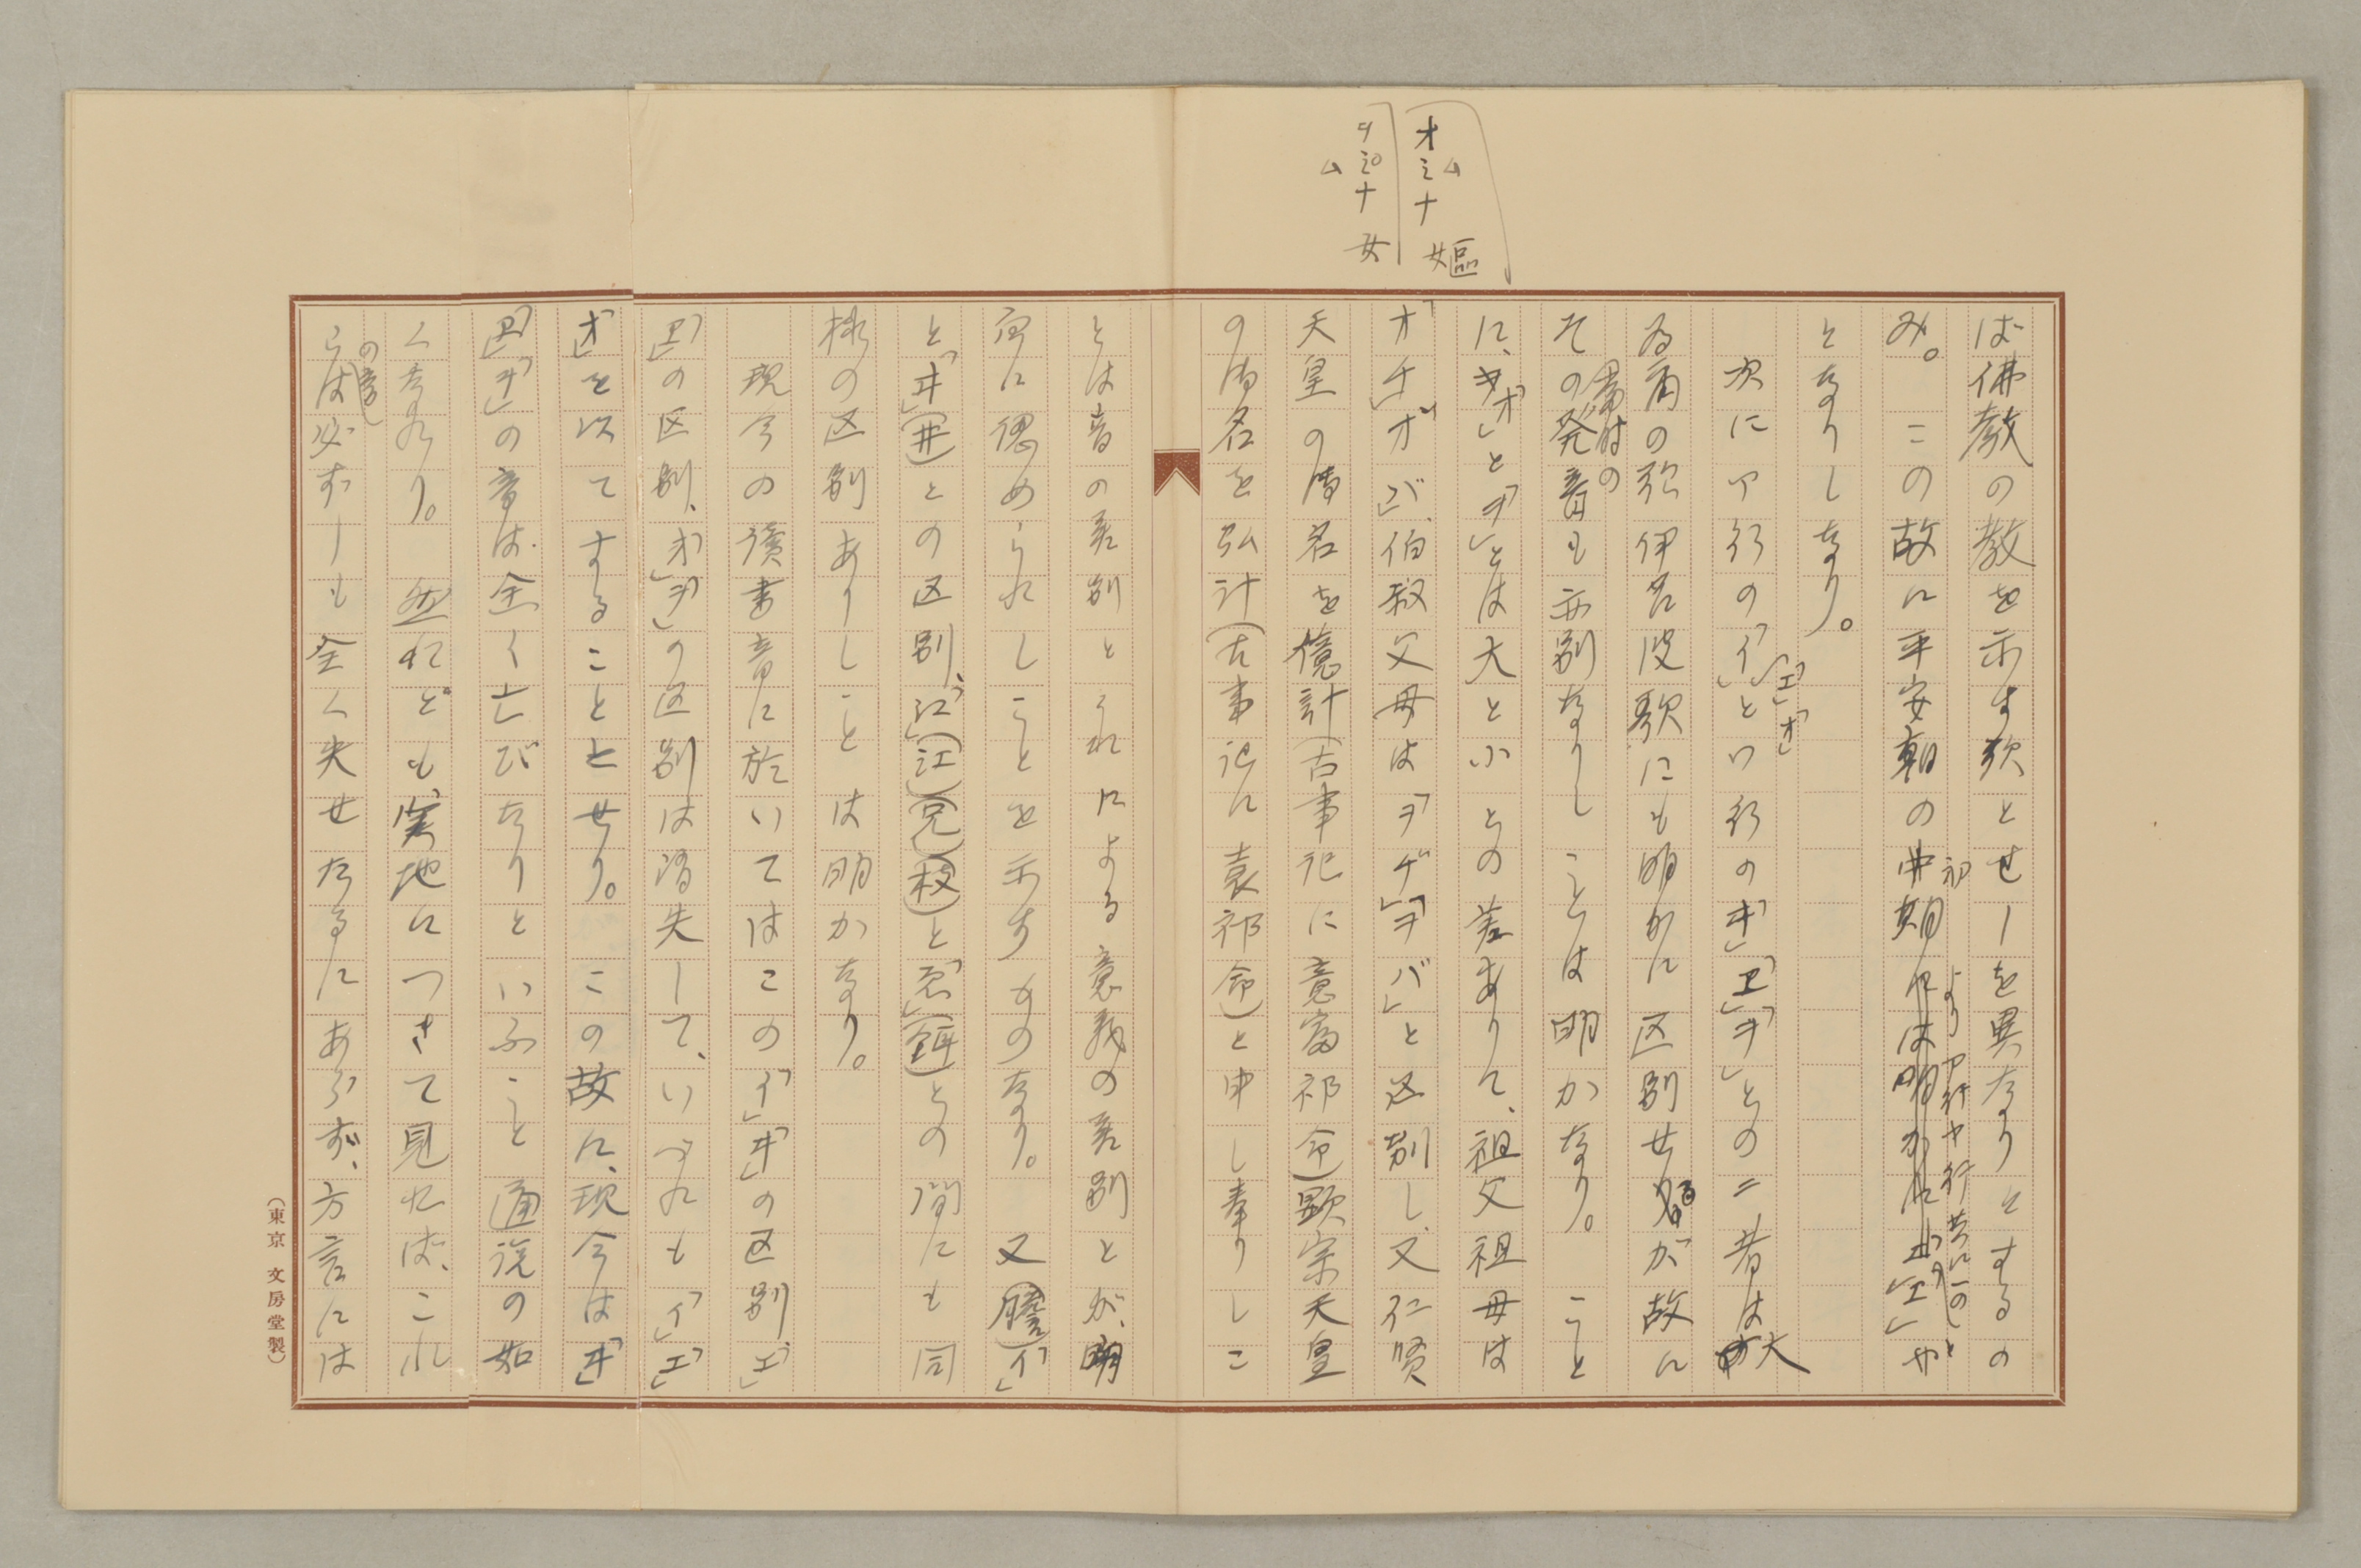 オミナ 嫗
ム
ヲミナ 女
ム
ば佛教の教を示す歌とせしを異なりとするの
み。この故に平安朝の中期には明かに「エ」や
初
よりア行ヤ行共に一のと
となりしなり。
次にア行の「イ」とワ行の「ヰ」「ヱ」「ヲ」との二者は
「エ」「オ」
大
為爾の歌伊呂波歌にも明かに区別せるが故に
その発音も亦別なりしことは明かなり。こと
当時の
に、「オ」と「ヲ」とは大と小との差ありて、祖父祖母は
「オヂ」「オバ」、伯叔父母は「ヲヂ」「ヲバ」と区別し、又仁賢
天皇の御名を億計(古事記に意富祁命)顕宗天皇
の御名を弘計(古事記に袁祁命)と申し奉りしこ
とは音の差別とそれによる意義の差別とが、明
両に認められしことを示すものなり。又(膽)「イ」
と「ヰ」(井)との区別、「江」(江)(兄)(枝)と「ゑ」(餌)との間にも同
様の区別ありしことは明かなり。
現今の讀書音に於いてはこの「イ」「ヰ」の区別、「エ」
「ヱ」の区別、「オ」「ヲ」の区別は消失して、いづれも「イ」「エ」
「オ」を以てすることとせり。この故に、現今は「ヰ」
「ヱ」「ヲ」の音は全く亡びたりといふこと通説の如
くなれり。然れども、実地につきて見れば、これ
らは必ずしも全く失せたるにあらず、方言には
の音
(東京 文房堂製)